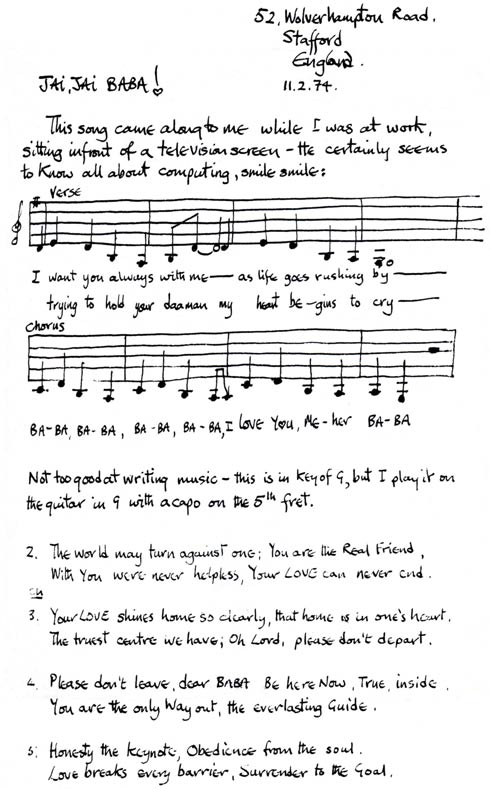 52, Wolverhampton Road.
Stafford
England.
JAI, JAI BABA! 11.2.74.
This song came along to me while I was at work,
sitting infront of a television screen - He certainly seems
to know all about computing, smile smile:
Verse
I want you always with me — as life goes rushing by —
trying to hold your daaman my heart be-gins to cry —
Chorus
BA-BA, BA-BA, BA-BA, BA-BA, I LOVE YOU, ME-her BA-BA
Not too good at writing music - this is in key of G, but I play it on
the guitar in G with a capo on the 5th fret.
2. The world may turn against one; You are the Real Friend,
With You were never helpless, Your LOVE can never end.
3. Your LOVE shines home so clearly, that home is in one's heart.
The truest centre we have; Oh Lord, please don't depart.
4. Please don't leave, dear BABA Be here Now, True, inside.
You are the only Way out, the everlasting Guide.
5. Honesty the keynote, Obedience from the soul.
Love breaks every barrier, Surrender to the Goal.